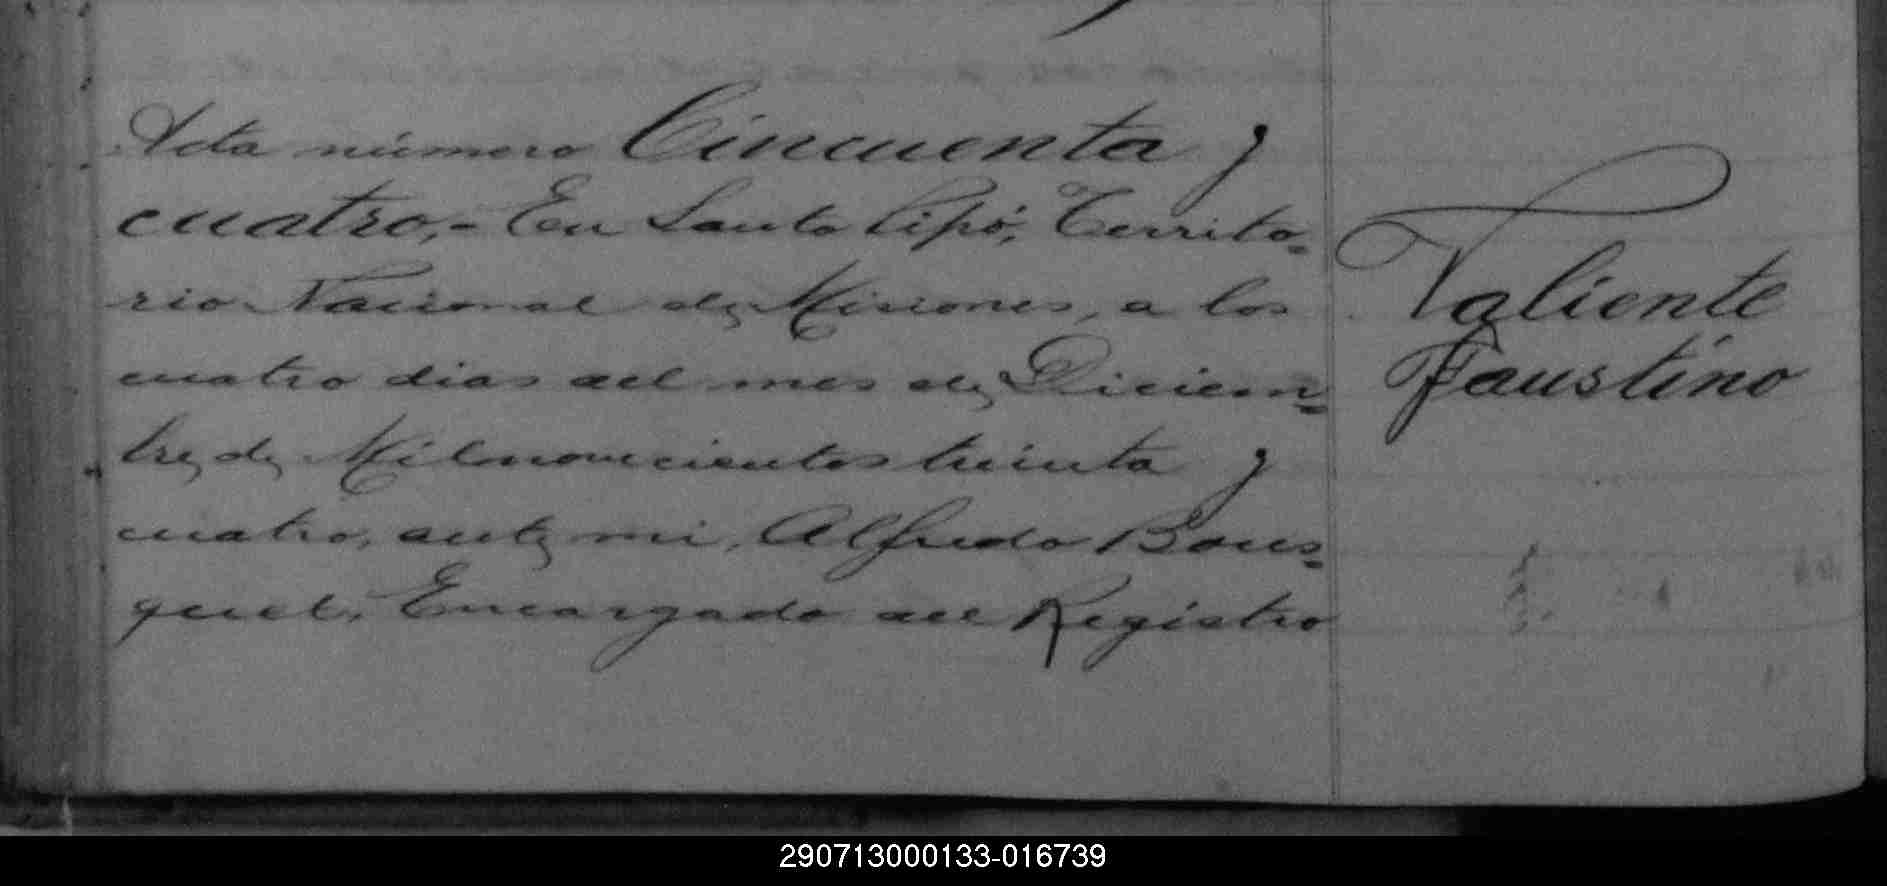 Acta número Cincuenta y
cuatro.- En Santo Pipó, Territo-
rio Nacional de Misiones, a los
cuatro dias del mes de Diciem-
bre de Mil novecientos treinta y
cuatro, ante mi, Alfredo Bous-
quet, Encargado del Registro
Valiente
Faustino
290713000133-016739